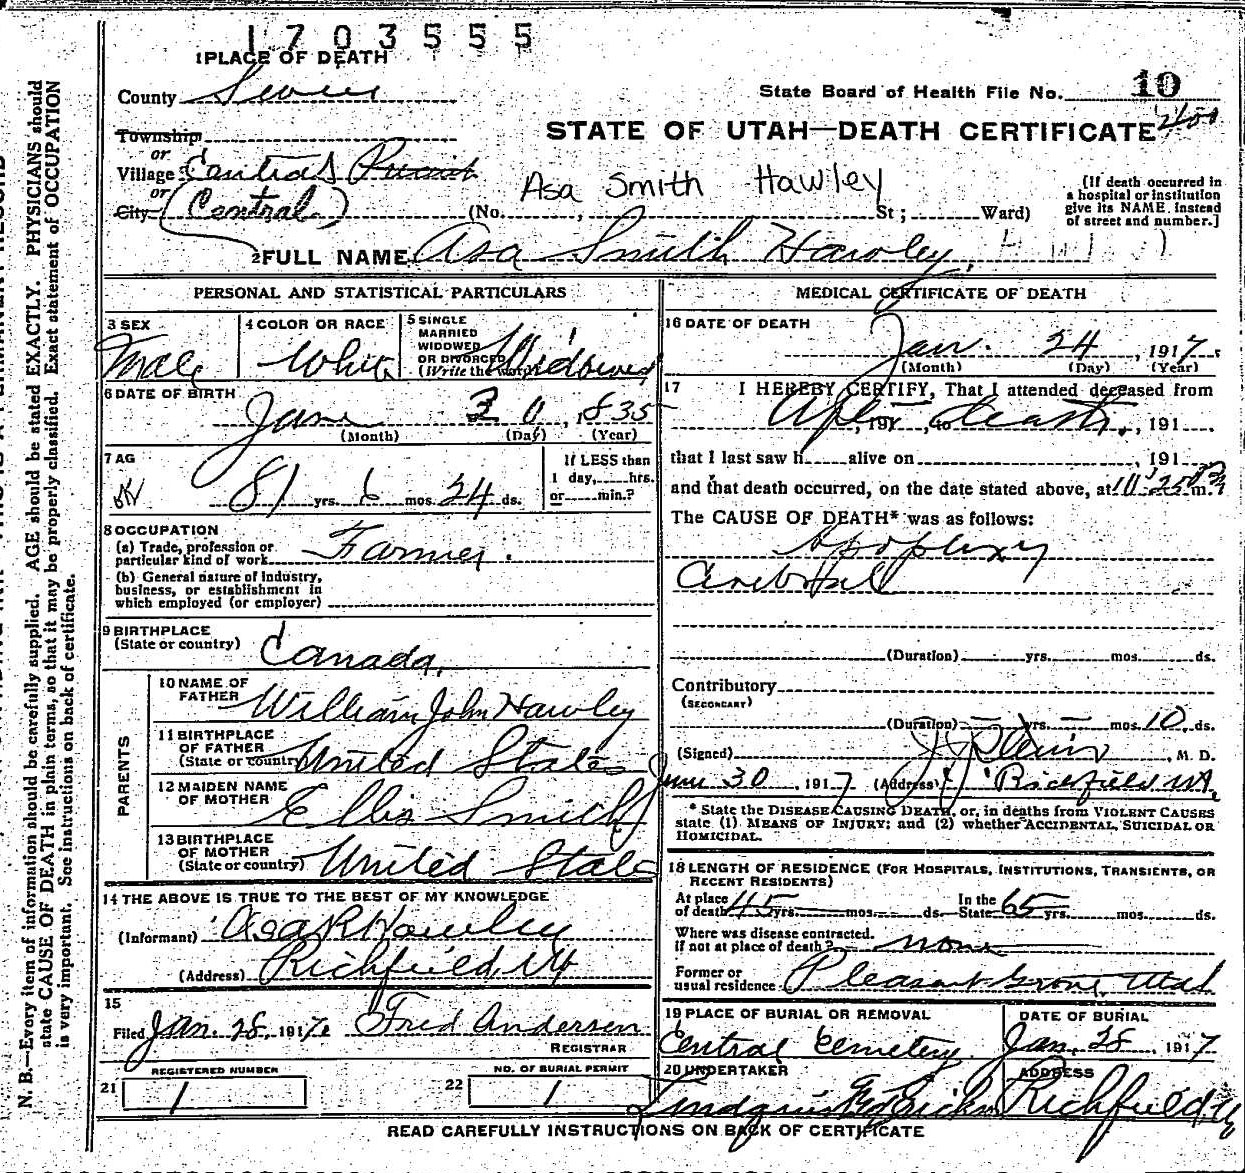 1703555
1 PLACE OF DEATH
County Sevier
State Board of Health File No. 10
Township
STATE OF UTAH—DEATH CERTIFICATE
or
Village Central Precinct
or
City (Central)
Asa Smith Hawley
(No. , St; Ward)
(If death occurred in
a hospital or institution
give its NAME instead
of street and number.]
2 FULL NAME Asa Smith Hawley
PERSONAL AND STATISTICAL PARTICULARS
3 SEX
Male
4 COLOR OR RACE
White
5 SINGLE
MARRIED
WIDOWED
OR DIVORCED
(Write the word)
Widowed
6 DATE OF BIRTH
June 30, 1835
(Month) (Day) (Year)
7 AG
81 yrs. 6 mos. 24 ds.
If LESS than
1 day, hrs.
or min.?
8 OCCUPATION
(a) Trade, profession or
particular kind of work Farmer.
(b) General nature of industry,
business, or establishment in
which employed (or employer)
9 BIRTHPLACE
(State or country) Canada.
PARENTS
10 NAME OF
FATHER William John Hawley
11 BIRTHPLACE
OF FATHER
(State or country) United States
12 MAIDEN NAME
OF MOTHER Ellis Smith
13 BIRTHPLACE
OF MOTHER
(State or country) United States
14 THE ABOVE IS TRUE TO THE BEST OF MY KNOWLEDGE
(Informant) Asa R Hawley
(Address) Richfield, Ut
15
Filed Jan. 28, 1917. Fred Andersen
REGISTRAR
REGISTERED NUMBER
21 1
NO. OF BURIAL PERMIT
22 1
MEDICAL CERTIFICATE OF DEATH
16 DATE OF DEATH
Jan. 24, 1917.
(Month) (Day) (Year)
17 I HEREBY CERTIFY, That I attended deceased from
, 191 , to death, 191
that I last saw h alive on , 191
and that death occurred, on the date stated above, at 10:25 m.
The CAUSE OF DEATH* was as follows:
Apoplexy
(Duration) yrs. mos. ds.
Contributory
(SECONDARY)
(Duration) — yrs. — mos. 10 ds.
(Signed) , M. D.
June 30, 1917 (Address) Richfield Ut.
* State the DISEASE CAUSING DEATH, or, in deaths from VIOLENT CAUSES
state (1) MEANS OF INJURY; and (2) whether ACCIDENTAL, SUICIDAL OR
HOMICIDAL.
18 LENGTH OF RESIDENCE (FOR HOSPITALS, INSTITUTIONS, TRANSIENTS, OR
RECENT RESIDENTS)
At place
of death 45 yrs. mos. ds. In the
State 65 yrs. mos. ds.
Where was disease contracted.
if not at place of death? none
Former or
usual residence Pleasant Grove, Utah
19 PLACE OF BURIAL OR REMOVAL
Central Cemetery
DATE OF BURIAL
Jan. 28, 1917
20 UNDERTAKER
ADDRESS
Richfield Ut
READ CAREFULLY INSTRUCTIONS ON BACK OF CERTIFICATE
N. B.—Every item of information should be carefully supplied. AGE should be stated EXACTLY. PHYSICIANS should
state CAUSE OF DEATH in plain terms, so that it may be properly classified. Exact statement of OCCUPATION
is very important. See instructions on back of certificate.